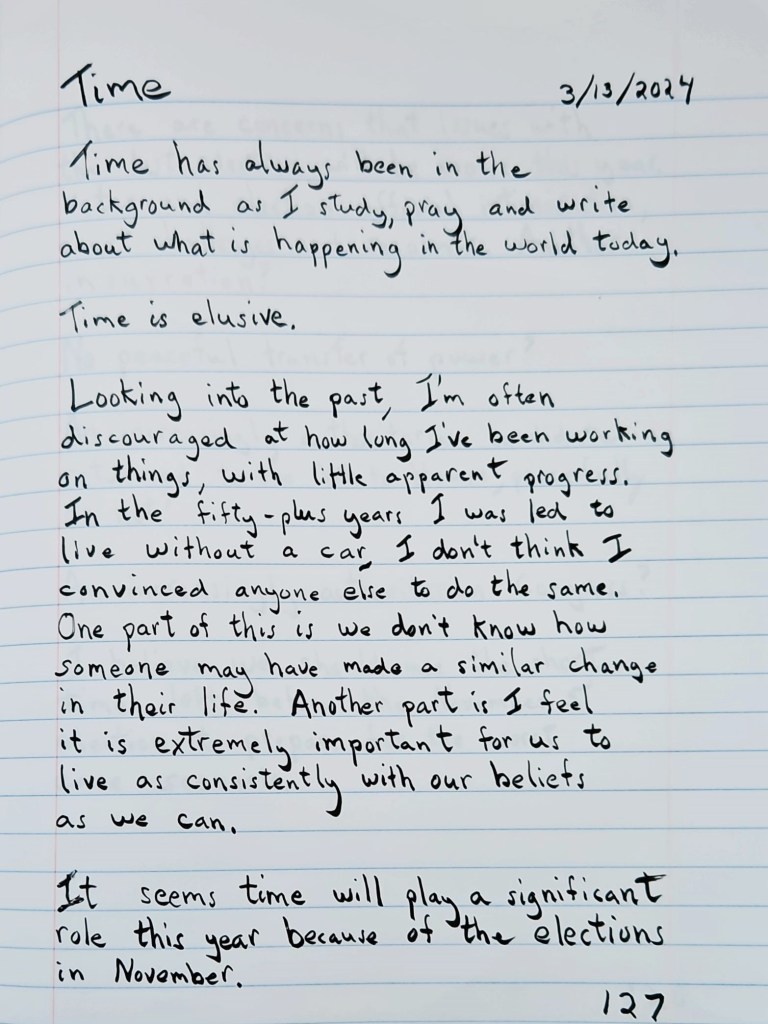 Time 3/13/2024
Time has always been in the
background as I study, pray and write
about what is happening in the world today.
Time is elusive.
Looking into the past, I'm often
discouraged at how long I've been working
on things, with little apparent progress.
In the fifty-plus years I was led to
live without a car, I don't think I
convinced anyone else to do the same.
One part of this is we don't know how
someone may have made a similar change
in their life. Another part is I feel
it is extremely important for us to
live as consistently with our beliefs
as we can.
It seems time will play a significant
role this year because of the elections
in November.
127